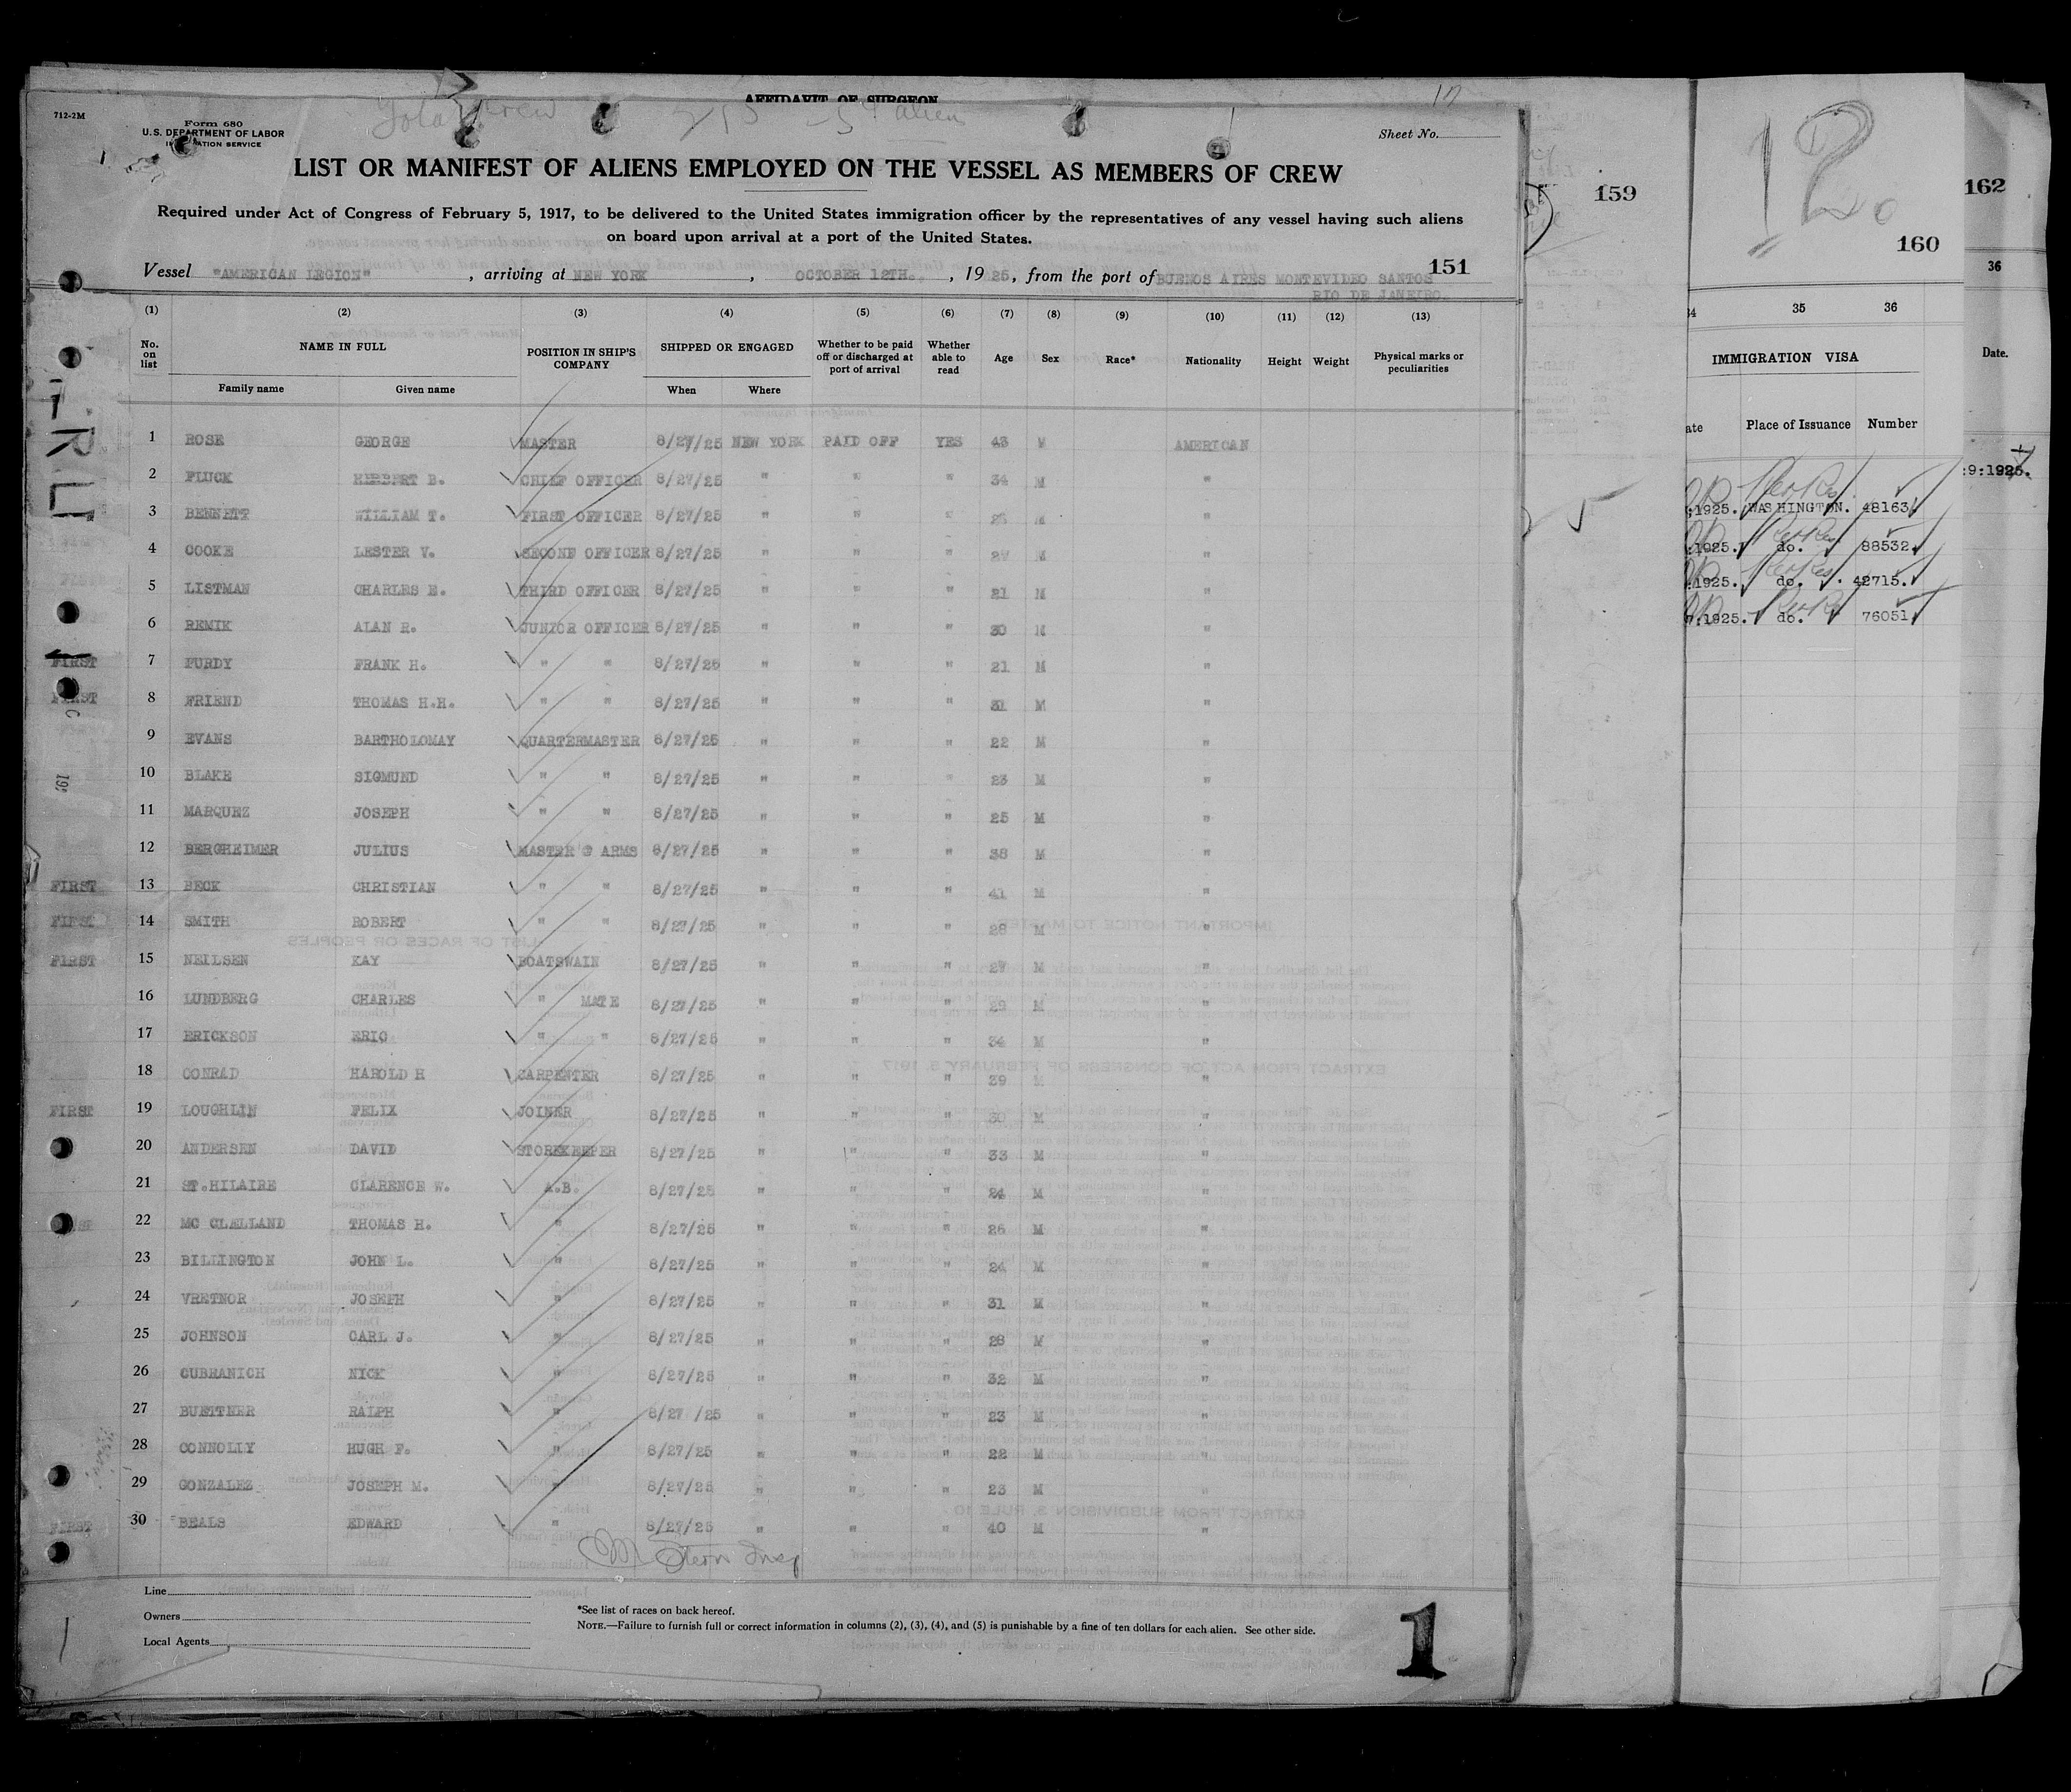 AFFIDAVIT OF SURGEON
712-2M
Form 680
U.S. DEPARTMENT OF LABOR
IMMIGRATION SERVICE
Sheet No.
LIST OR MANIFEST OF ALIENS EMPLOYED ON THE VESSEL AS MEMBERS OF CREW
Required under Act of Congress of February 5, 1917, to be delivered to the United States immigration officer by the representatives of any vessel having such aliens
on board upon arrival at a port of the United States.
151
Vessel "AMERICAN LEGION", arriving at NEW YORK, OCTOBER 12TH., 1925, from the port of BUENOS AIRES MONTEVIDEO SANTOS
RIO DE JANEIRO.
(1) (2) (3) (4) (5) (6) (7) (8) (9) (10) (11) (12) (13)
No. on list NAME IN FULL POSITION IN SHIP'S COMPANY SHIPPED OR ENGAGED Whether to be paid off or discharged at port of arrival Whether able to read Age Sex Race* Nationality Height Weight Physical marks or peculiarities
Family name Given name When Where
1 ROSE GEORGE MASTER 8/27/25 NEW YORK PAID OFF YES 43 M AMERICAN
2 FLUCK HERBERT B. CHIEF OFFICER 8/27/25 " " " 34 M "
3 BENNETT WILLIAM T. FIRST OFFICER 8/27/25 " " " M "
4 COOKE LESTER V. SECOND OFFICER 8/27/25 " " " 27 M "
5 LISTMAN CHARLES E. THIRD OFFICER 8/27/25 " " " 21 M "
6 REMIK ALAN R. JUNIOR OFFICER 8/27/25 " " " 30 M "
FIRST 7 PURDY FRANK H. " " 8/27/25 " " " 21 M "
FIRST 8 FRIEND THOMAS H.H. " " 8/27/25 " " " 31 M "
9 EVANS BARTHOLOMAY QUARTERMASTER 8/27/25 " " " 22 M "
10 BLAKE SIGMUND " " 8/27/25 " " " 23 M "
11 MARQUEZ JOSEPH " " 8/27/25 " " " 25 M "
12 BERGHEIMER JULIUS MASTER @ ARMS 8/27/25 " " " 38 M "
FIRST 13 BECK CHRISTIAN " " 8/27/25 " " " 41 M "
FIRST 14 SMITH ROBERT " " 8/27/25 " " " 28 M "
FIRST 15 NEILSEN KAY BOATSWAIN 8/27/25 " " " 27 M "
16 LUNDBERG CHARLES " MATE 8/27/25 " " " 29 M "
17 ERICKSON ERIC " " 8/27/25 " " " 34 M "
18 CONRAD HAROLD H CARPENTER 8/27/25 " " " 39 M "
FIRST 19 LOUGHLIN FELIX JOINER 8/27/25 " " " 30 M "
20 ANDERSEN DAVID STOREKEEPER 8/27/25 " " " 33 M "
21 ST.HILAIRE CLARENCE W. A.B. 8/27/25 " " " 24 M "
22 MC CLELLAND THOMAS H. " 8/27/25 " " " 26 M "
23 BILLINGTON JOHN L. " 8/27/25 " " " 24 M "
24 VRETNOR JOSEPH " 8/27/25 " " " 31 M "
25 JOHNSON CARL J. " 8/27/25 " " " 28 M "
26 CUBRANICH NICK " 8/27/25 " " " 32 M "
27 BUETTNER RALPH " 8/27 /25 " " " 23 M "
28 CONNOLLY HUGH F. " 8/27/25 " " " 22 M "
29 GONZALEZ JOSEPH M. " 8/27/25 " " " 23 M "
FIRST 30 BEALS EDWARD " 8/27/25 " " " 40 M "
Line
Owners
Local Agents
*See list of races on back hereof.
NOTE.—Failure to furnish full or correct information in columns (2), (3), (4), and (5) is punishable by a fine of ten dollars for each alien. See other side.
1
159
12
160
35 36
IMMIGRATION VISA
Place of Issuance Number
:1925. WASHINGTON. 48163
:1925. do. 88532.
:1925. do. 42715.
:1925. do. 76051
162
36
Date.
:9:1925.